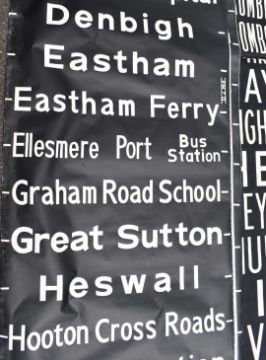 Denbigh
Eastham
Eastham Ferry
Ellesmere Port Bus Station
Graham Road School
Great Sutton
Heswall
Hooton Cross Roads